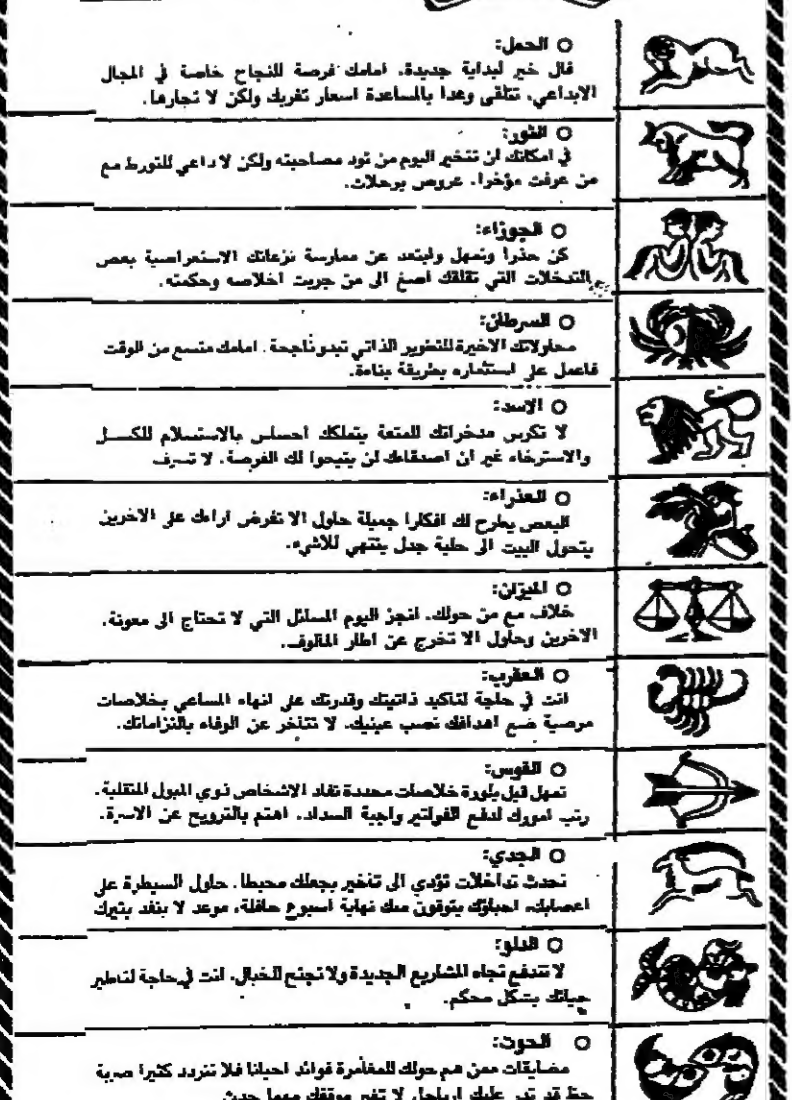 ○ الحمل:
فال خير لبداية جديدة. امامك فرصة للنجاح خاصة في المجال
الابداعي. تتلقى وعدا بالمساعدة اسعار تغريك ولكن لا تجارها.
○ الثور:
في امكانك ان تتخير اليوم من تود مصاحبته ولكن لا داعي للتورط مع
من عرفت مؤخرا. عروض برحلات.
○ الجوزاء:
كن حذرا وتمهل وابتعد عن ممارسة نزعاتك الاستعراضية بعض
التدخلات التي تقلقك اصغ الى من جربت اخلاصه وحكمته.
○ السرطان:
محاولاتك الاخيرة للتطوير الذاتي تبدو ناجحة. امامك متسع من الوقت
فاعمل على استثماره بطريقة بناءة.
○ الاسد:
لا تكرس مدخراتك للمتعة يتملكك احساس بالاستسلام للكسل
والاسترخاء غير ان اصدقاءك لن يتيحوا لك الفرصة. لا تسرف
○ العذراء:
البعض يطرح لك افكارا جميلة حاول الا تفرض اراءك على الاخرين
يتحول البيت الى حلبة جدل ينتهي للاشيء.
○ الميزان:
خلاف مع من حولك. انجز اليوم المسائل التي لا تحتاج الى معونة.
الاخرين وحاول الا تخرج عن اطار المالوف.
○ العقرب:
انت في حاجة لتاكيد ذاتيتك وقدرتك على انهاء المساعي بخلاصات
مرضية ضع اهدافك نصب عينيك. لا تتاخر عن الوفاء بالتزاماتك.
○ القوس:
تمهل قبل بلورة خلاصات محددة تفاد الاشخاص ذوي الميول المتقلبة.
رتب امورك لدفع الفواتير واجبة السداد. اهتم بالترويح عن الاسرة.
○ الجدي:
تحدث تداخلات تؤدي الى تاخير يجعلك محبطا. حاول السيطرة على
اعصابك. احباؤك يتوقون منك نهاية اسبوع حافلة، موعد لا بنفد يثيرك
○ الدلو:
لا تندفع تجاه المشاريع الجديدة ولا تجنح للخيال. انت في حاجة لتاطير
حياتك بشكل محكم.
○ الحوت:
مضايقات ممن هم حولك للمغامرة فوائد احيانا فلا تتردد كثيرا ضربة
حظ قد تدر عليك ارباحا. لا تغير موقفك مهما حدث